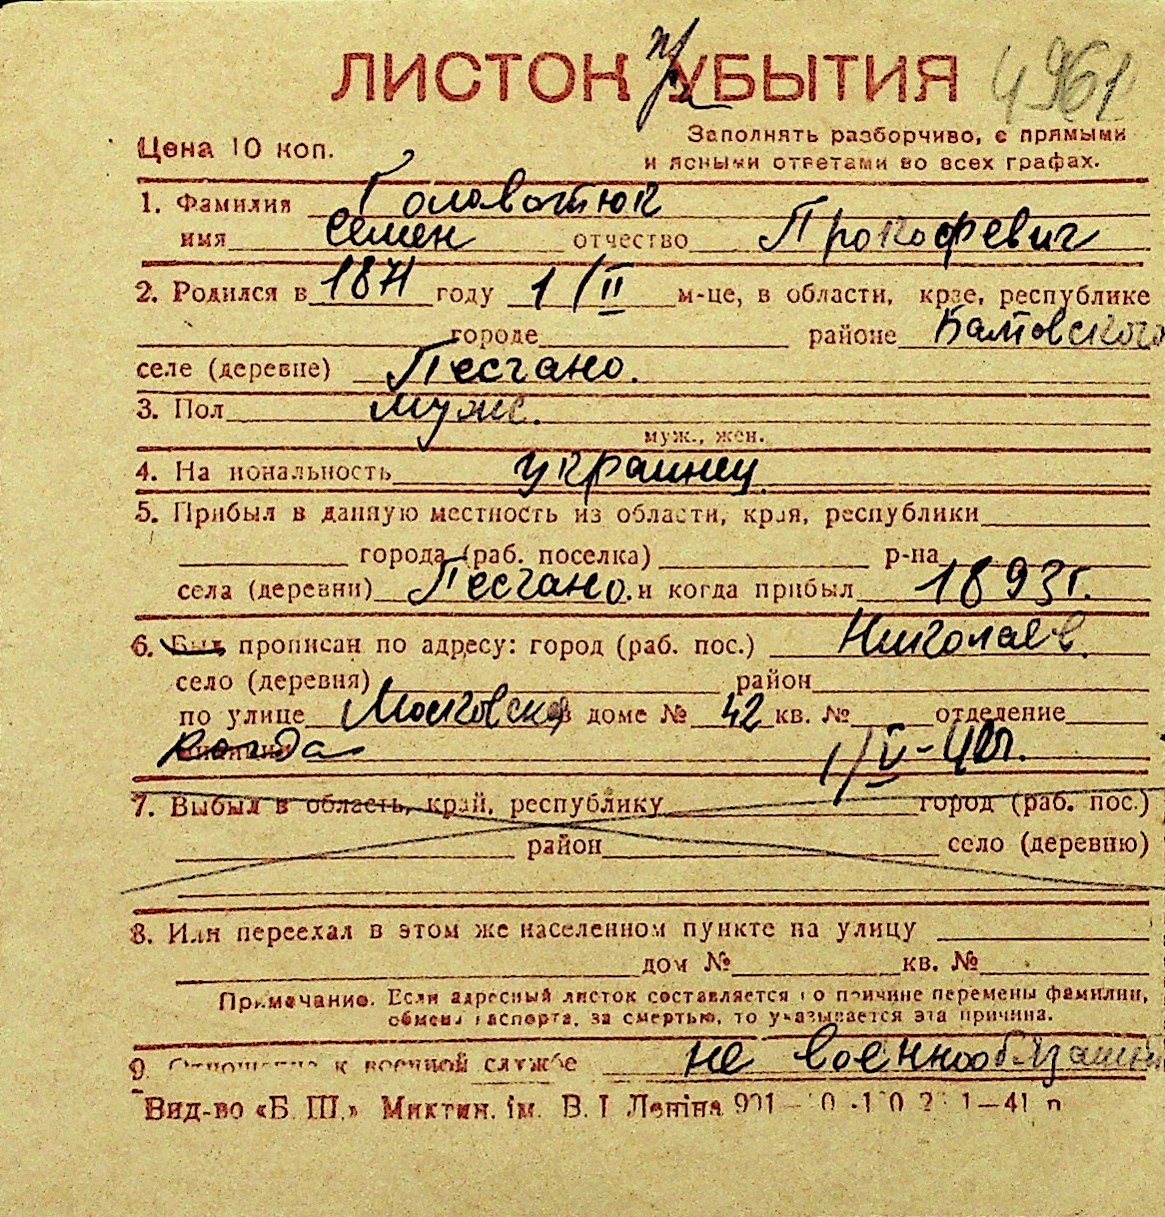 ЛИСТОК УБЫТИЯ
пр
4961
Цена 10 коп.
Заполнять разборчиво, с прямыми
и ясными ответами во всех графах.
1. Фамилия Головатюк
имя Семен отчество Прокофевич
2. Родился в 1871 году 1/II м-це, в области, крае, республике
городе районе Балтовского
селе (деревне) Песчано.
3. Пол мужс.
муж., жен.
4. Национальность украинец
5. Прибыл в данную местность из области, края, республики
города (раб. поселка) р-на
села (деревни) Песчано. и когда прибыл 1893г.
6. Был прописан по адресу: город (раб. пос.) Николаев.
село (деревня) район
по улице Московск в доме № 42 кв. № отделение
когда 1/V-42г.
7. Выбыл в область, край, республику город (раб. пос.)
район село (деревню)
8. Или переехал в этом же населенном пункте на улицу
дом № кв. №
Примечание. Если адресный листок составляется по причине перемены фамилии,
обмена паспорта, за смертью, то указывается эта причина.
9. Отношение к военной службе не военнообязанн
Вид-во «Б. Ш.» Микти. ім. В. І Леніна